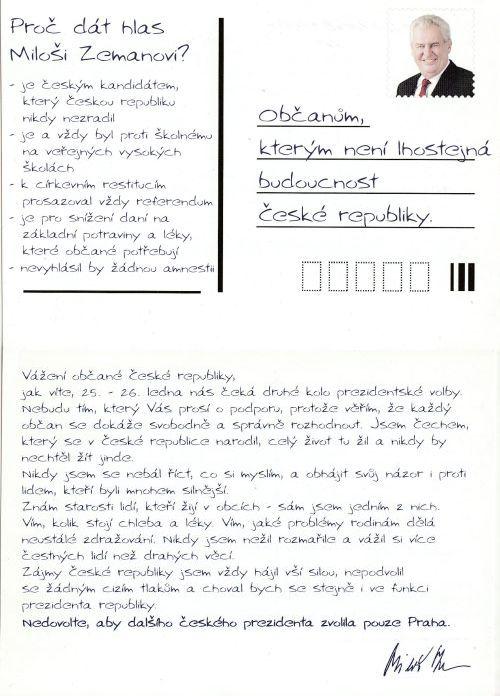 Proč dát hlas
Miloši Zemanovi?
- je českým kandidátem,
který českou republiku
nikdy nezradil
- je a vždy byl proti školnému
na veřejných vysokých
školách
- k církevním restitucím
prosazoval vždy referendum
- je pro snížení daní na
základní potraviny a léky,
které občané potřebují
- nevyhlásil by žádnou amnestii
Občanům,
kterým není lhostejná
budoucnost
české republiky.
Vážení občané české republiky,
jak víte, 25. - 26. ledna nás čeká druhé kolo prezidentské volby.
Nebudu tím, který Vás prosí o podporu, protože věřím, že každý
občan se dokáže svobodně a správně rozhodnout. Jsem čechem,
který se v české republice narodil, celý život tu žil a nikdy by
nechtěl žít jinde.
Nikdy jsem se nebál říct, co si myslím, a obhájit svůj názor i proti
lidem, kteří byli mnohem silnější.
Znám starosti lidí, kteří žijí v obcích - sám jsem jedním z nich.
Vím, kolik stojí chleba a léky. Vím, jaké problémy rodinám dělá
neustálé zdražování. Nikdy jsem nežil rozmařile a vážil si více
čestných lidí než drahých věcí.
Zájmy české republiky jsem vždy hájil vší silou, nepodvolil
se žádným cizím tlakům a choval bych se stejně i ve funkci
prezidenta republiky.
Nedovolte, aby dalšího českého prezidenta zvolila pouze Praha.